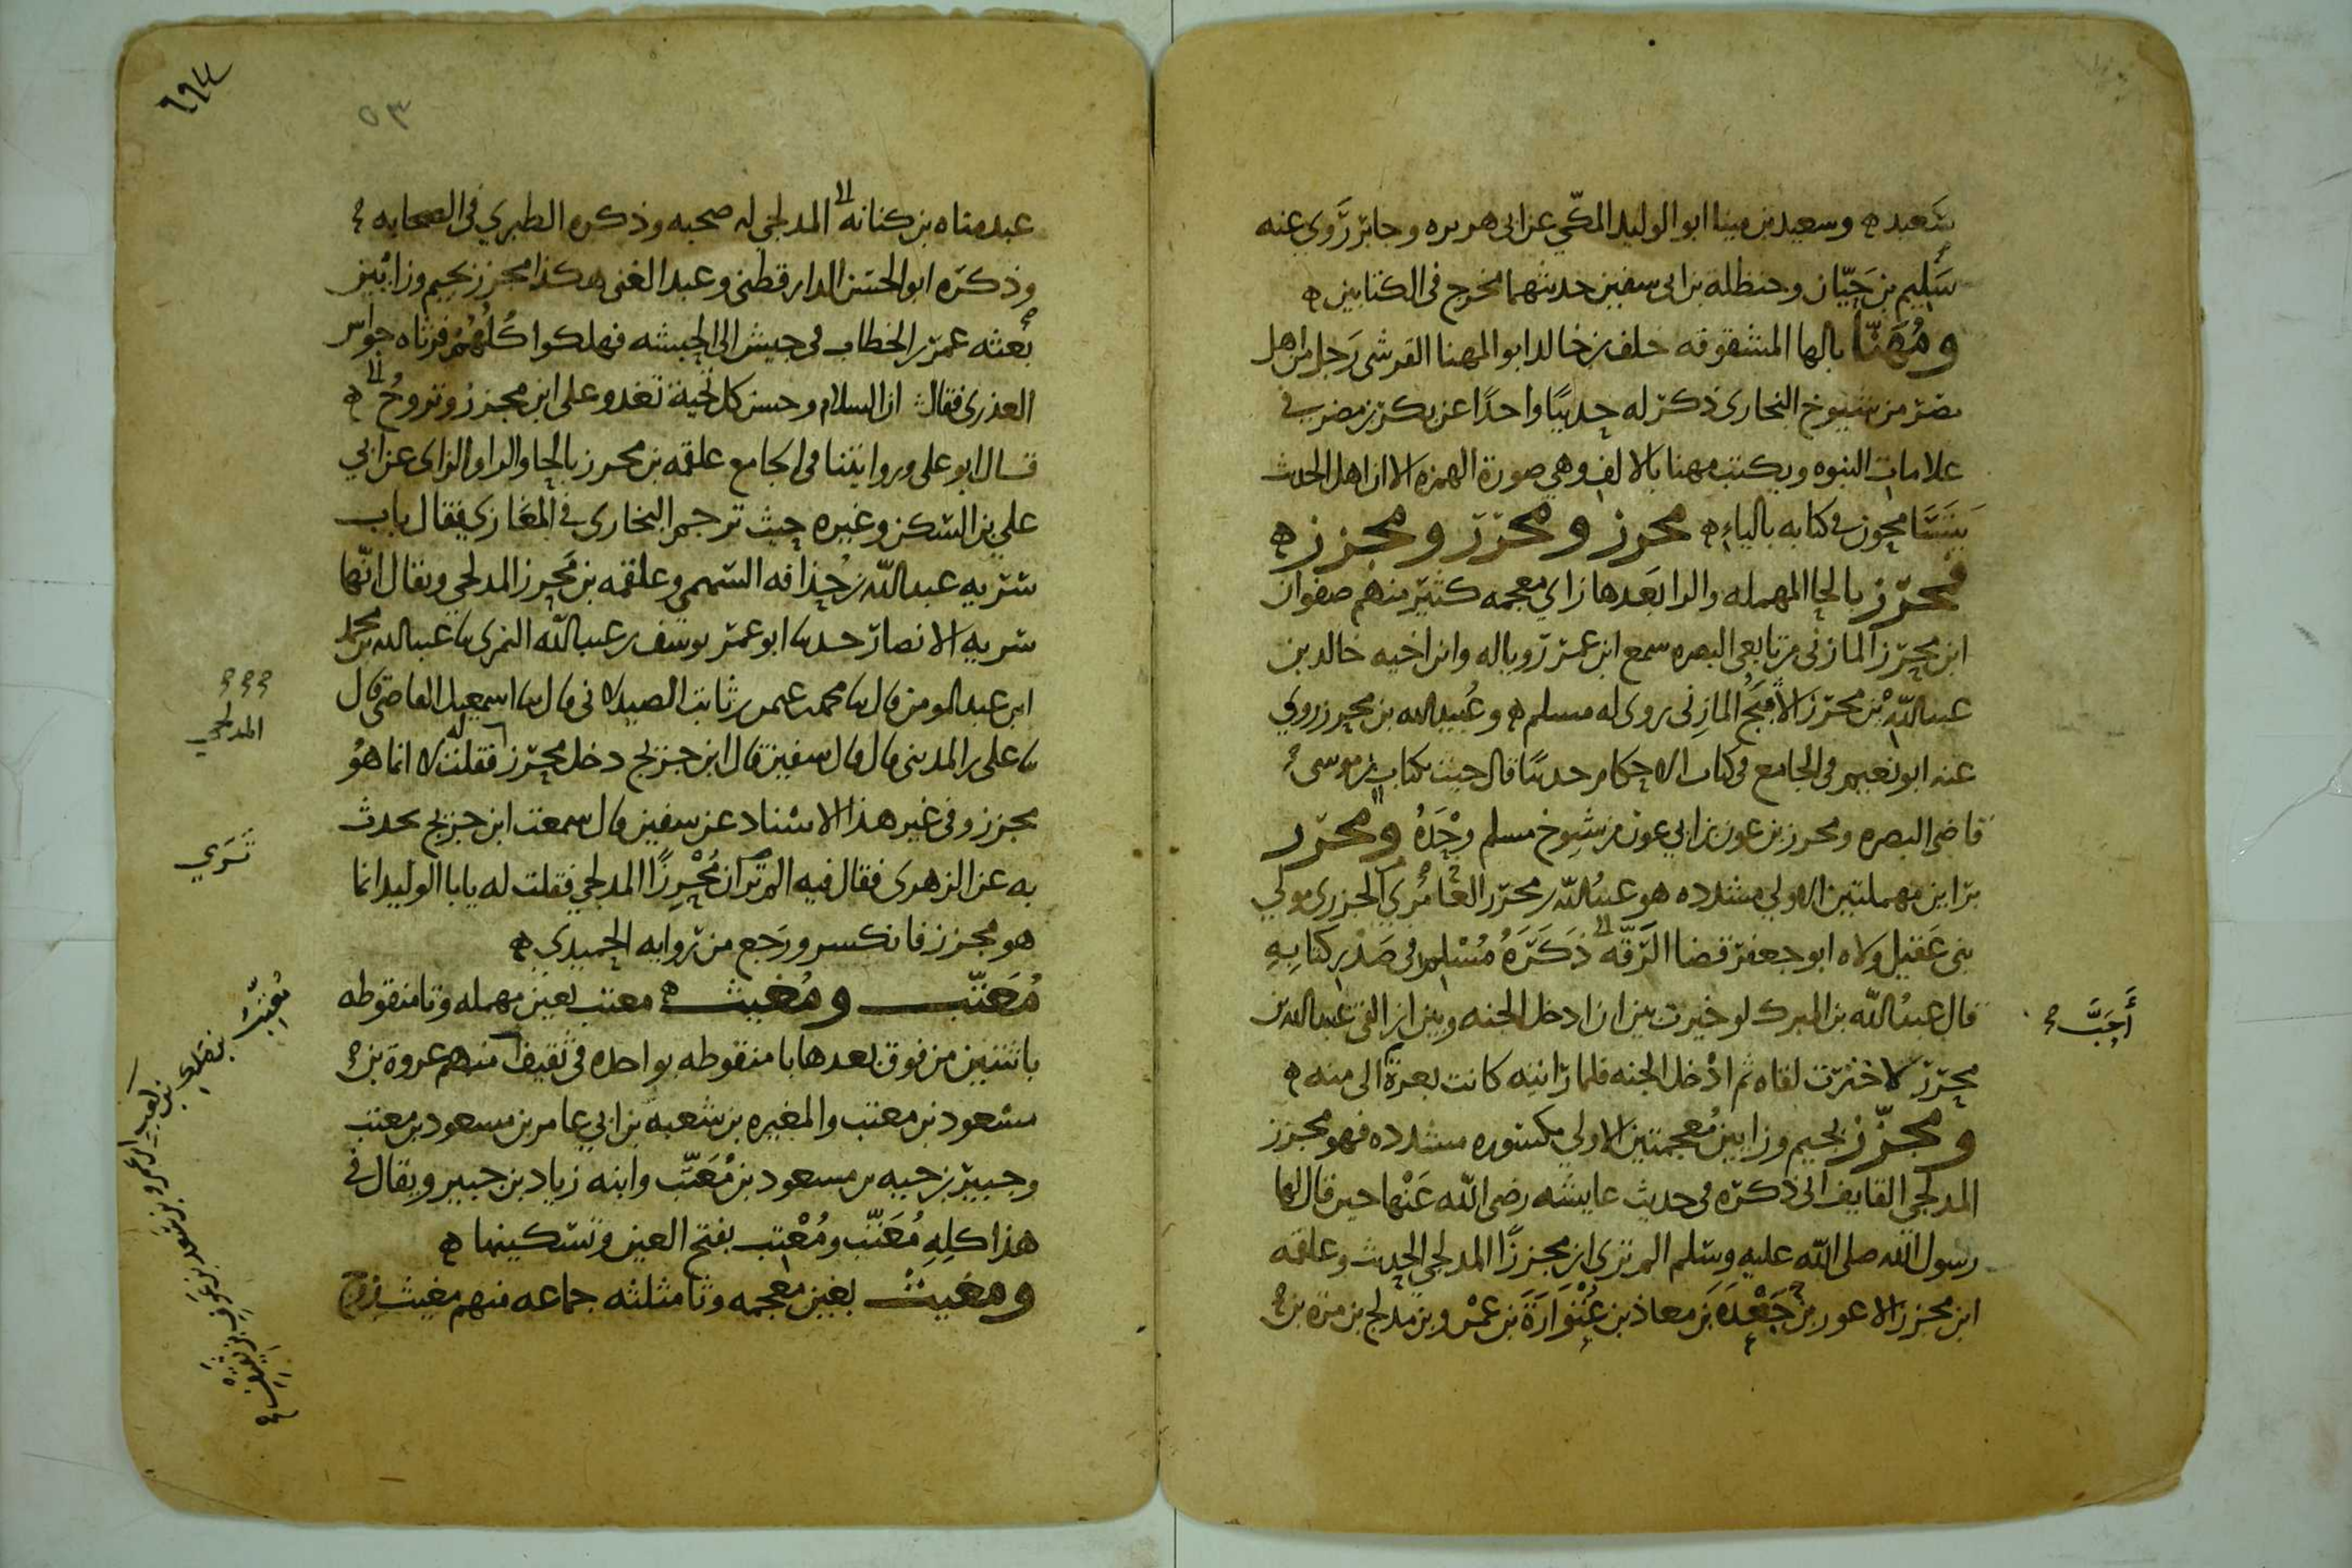 سعيد ه وسعيد بن مينا ابو الوليد المكّي عن ابى هريره وجابر رَوى عنه
سَلِيم بن حَيّان وحنظلة بن ابى سفين حديثهما مخرج فى الكتابين ه
ومُهَنّا بالها المشقوقه خلف بن خالد ابو المهنا القرشى رَجل من اهل
مصر من شيوخ البخارى ذكر له حديثًا واحدًا عن بكر بن مضر فى
علامات النبوه ويكتب مهنا بالالف وهي صورة الهمزه الا ان اهل الحديث
محوز فى كتابه بالياء ه محرز ومحرّر ومجزز ه
فمحرز بالحا المهمله والرا بَعدها زاى معجمه كثير منهم صفوان
ابن محرز المازنى من تابعى البصره سمع ابن عمر رويا له وابن اخيه خالد بن
عبد الله بن محرز الاثبج المازِنى روى له مسلم ه وعُبيد الله بن محرز روى
عنه ابو نعيم فى الجامع فى كتاب الاحكام حديثا قال جيت بكتاب من موسى
قاضى البصره ومحرز بن عون بن ابي عون من شيوخ مسلم وحْدَهُ ومحرّر
برايين مهملتين الاولى مشدده هو عبد الله بن محرّر العامرى الجزرى مولى
بنى عَقيل ولاه ابو جعفر قضا الرّقّه ذَكَرَهُ مُسْلِم فى صَدْرِ كتابِهِ
قال عبد الله بن المبرك لو خيرت بين ان ادخل الجنه وبين ان القى عبد الله بن
محرّر لاخترت لقاه ثم ادْخل الجنه فلما رَايته كانت بعرة الى منه ه
أَحَبَّ
ومجزّز بجيم وزايين مُعجمتين الاولى مكسوره مشدده فهو مجزز
المدلجى القايف اتى ذكره فى حديث عايشه رضى الله عَنْها حين قال لها
رسول الله صلى الله عليه وسَلم الم ترى ان مجززًا المدلجي الحديث وعلقمه
ابن مجزز الاعور بن جَعْدَه بن معاذ بن عُتْوَارَةَ بن عَمْرو بن مدلج بن مره بن
٦٩٤
٥٣
عبد مناه بن كنانه المدلجي له صحبه وذكره الطبري فى الصحابه
وذكره ابو الحسن الدارقطنى وعبد الغنى هكذا مجزز بجيم وزايين
بعثه عمر بن الخطاب فى جيش الى الحبشه فهلكوا كُلُّهُمْ فرثاه جواس
العذرى فقال ان السلام وحسن كل تحية تغدو على ابن مجزز وتروحُ ه
قال ابو على وروايتنا فى الجامع علقمه بن محرز بالحا والرا والزاى عن ابي
علي بن السكن وغيره حيث ترجم البخارى فى المغازي فقال باب
سَريه عبد الله بن حُذافه السهمي وعلقمه بن مُحرز المدلجي ويقال انّها
سريه الانصار حدثنا ابو عمر يوسف بن عبد الله النمرى نا عبد الله بن محمد
ابن عبد المومن قال نا محمد بن عثمن بن ثابت الصيدلانى قال نا اسمعيل القاضى قال
نا على بن المدينى قال قال سفين قال ابن جريج دخل محرز فقلت له لا انما هُو
المدلجي
مجزز وفى غير هذا الاسناد عن سفين قال سمعت ابن جريج يحدث
به عن الزهرى فقال فيه الم تر ان مُحْرِزًا المدلجي فقلت له يابا الوليد انما
تَرَي
هو مجزز فانكسر ورَجع من رواية الحميدى ه
مُعَتّب ومُغيث ه معتب بعين مهمله وتا منقوطه
باثنتين من فوق بعدها با منقوطه بواحده فى ثقيف منهم عروة بن
مسعود بن معتب والمغيره بن شعبه بن ابي عامر بن مسعود بن معتب
وجبير بن حيه بن مسعود بن مُعَتّب وابنه زياد بن جبير ويقال فى
هذا كلِهِ مُعَتّب ومُعْتِب بفتح العين وتسكينها ه
ومغيث بغين معجمه وثا مثلثه جماعه منهم مغيث زوج
مُعَتِّب بن مَالِك بن كعب بن عمرو بن سَعد بن عَوف بن ثقيف